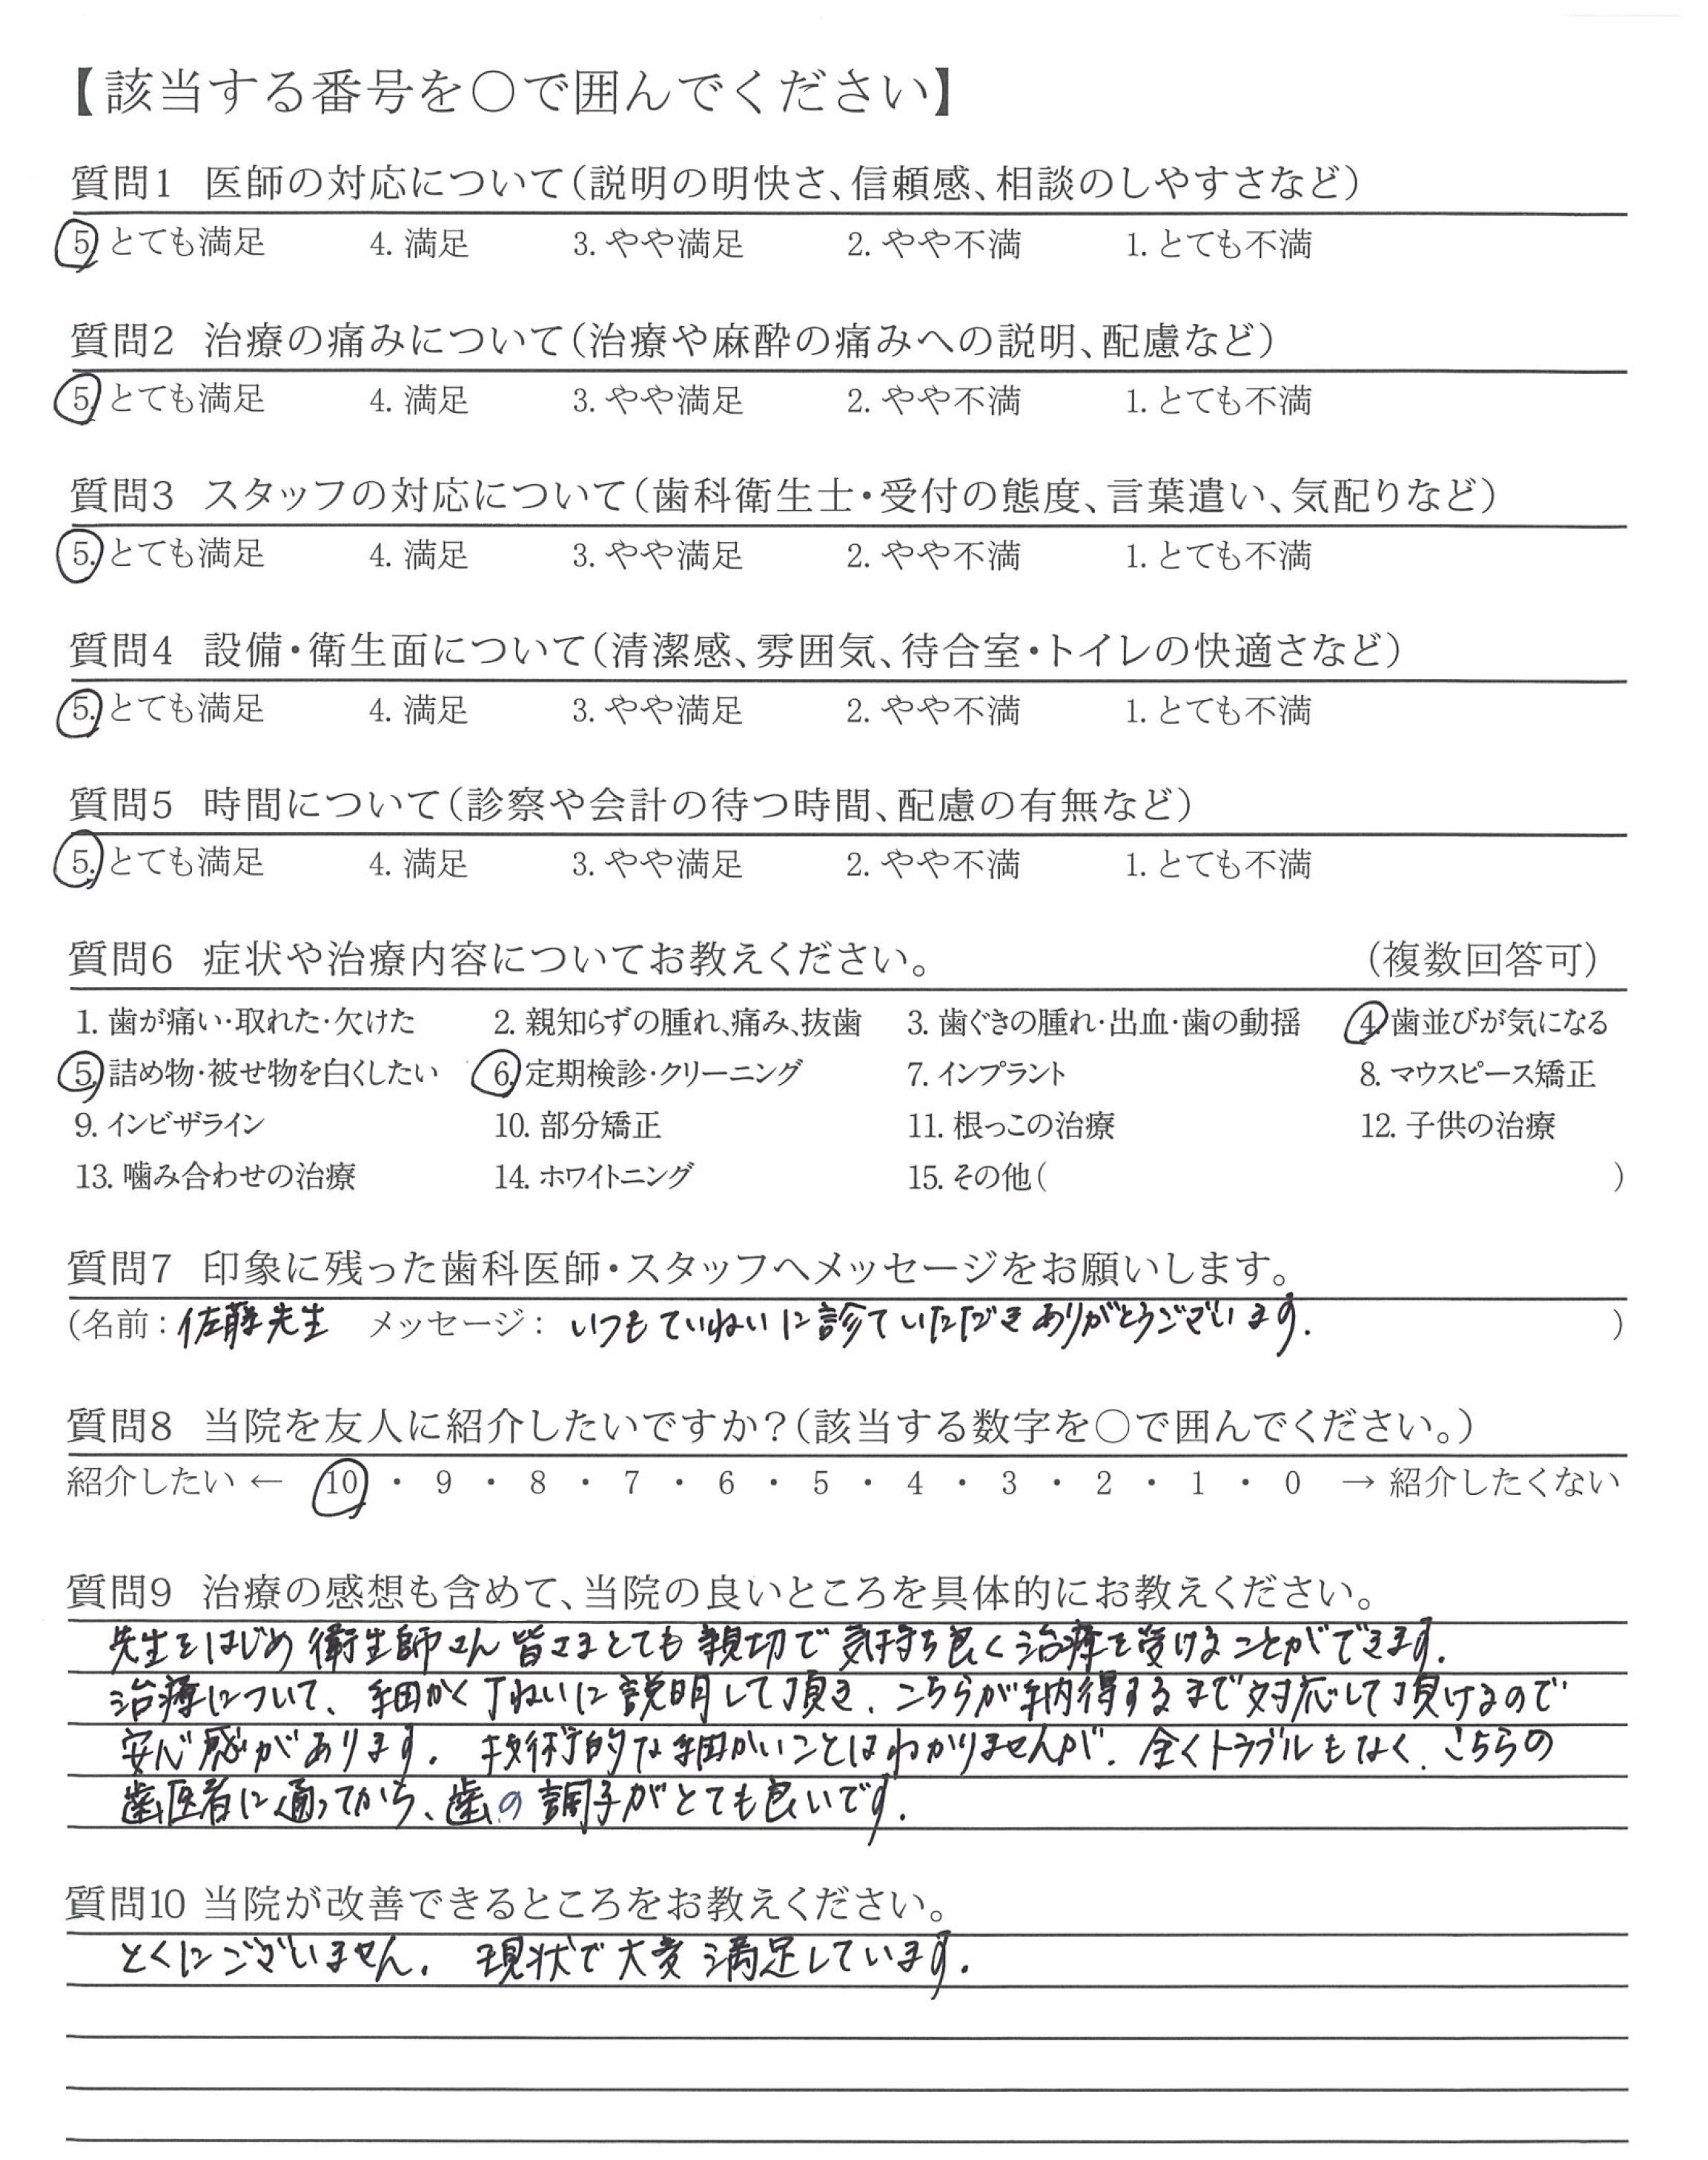 【該当する番号を○で囲んでください】
質問1 医師の対応について(説明の明快さ、信頼感、相談のしやすさなど)
5. とても満足 4. 満足 3. やや満足 2. やや不満 1. とても不満
質問2 治療の痛みについて(治療や麻酔の痛みへの説明、配慮など)
5. とても満足 4. 満足 3. やや満足 2. やや不満 1. とても不満
質問3 スタッフの対応について(歯科衛生士・受付の態度、言葉遣い、気配りなど)
5. とても満足 4. 満足 3. やや満足 2. やや不満 1. とても不満
質問4 設備・衛生面について(清潔感、雰囲気、待合室・トイレの快適さなど)
5. とても満足 4. 満足 3. やや満足 2. やや不満 1. とても不満
質問5 時間について(診察や会計の待つ時間、配慮の有無など)
5. とても満足 4. 満足 3. やや満足 2. やや不満 1. とても不満
質問6 症状や治療内容についてお教えください。 (複数回答可)
1. 歯が痛い・取れた・欠けた 2. 親知らずの腫れ、痛み、抜歯 3. 歯ぐきの腫れ・出血・歯の動揺 4. 歯並びが気になる
5. 詰め物・被せ物を白くしたい 6. 定期検診・クリーニング 7. インプラント 8. マウスピース矯正
9. インビザライン 10. 部分矯正 11. 根っこの治療 12. 子供の治療
13. 噛み合わせの治療 14. ホワイトニング 15. その他( )
質問7 印象に残った歯科医師・スタッフへメッセージをお願いします。
(名前:佐藤先生 メッセージ: いつもていねいに診ていただきありがとうございます. )
質問8 当院を友人に紹介したいですか?(該当する数字を○で囲んでください。)
紹介したい ← 10 ・ 9 ・ 8 ・ 7 ・ 6 ・ 5 ・ 4 ・ 3 ・ 2 ・ 1 ・ 0 → 紹介したくない
質問9 治療の感想も含めて、当院の良いところを具体的にお教えください。
先生をはじめ衛生師さん皆さまとても親切で気持ち良く治療を受けることができます.
治療について、細かく丁ねいに説明して頂き、こちらが納得するまで対応して頂けるので
安心感があります. 技術的な細かいことはわかりませんが、全くトラブルもなく、こちらの
歯医者に通ってから、歯の調子がとても良いです.
質問10 当院が改善できるところをお教えください。
とくにございません. 現状で大変満足しています.